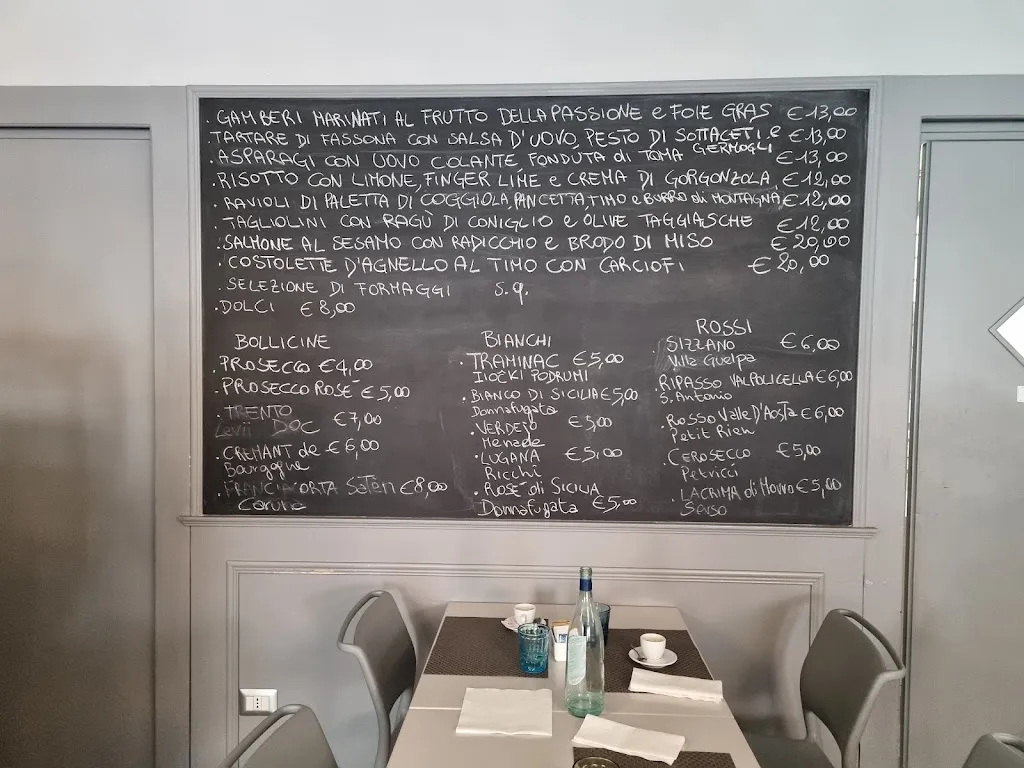 . GAMBERI MARINATI AL FRUTTO DELLA PASSIONE e FOIE GRAS € 13,00
TARTARE DI FASSONA CON SALSA D'UOVO, PESTO DI SOTTACETI e GERMOGLI € 13,00
. ASPARAGI CON UOVO COLANTE, FONDUTA di TOMA € 13,00
. RISOTTO CON LIMONE, FINGER LIME e CREMA DI GORGONZOLA € 12,00
. RAVIOLI DI PALETTA DI COGGIOLA, PANCETTA, TIMO e BURRO di MONTAGNA € 12,00
. TAGLIOLINI CON RAGÙ DI CONIGLIO e OLIVE TAGGIASCHE € 12,00
. SALMONE AL SESAMO CON RADICCHIO e BRODO DI MISO € 20,00
. COSTOLETTE D'AGNELLO AL TIMO CON CARCIOFI € 20,00
. SELEZIONE DI FORMAGGI s.q.
. DOLCI € 8,00
BOLLICINE
. PROSECCO € 4,00
. PROSECCO ROSÉ € 5,00
. TRENTO € 7,00
DOC
. CREMANT de € 6,00
Bourgogne
. FRANCIACORTA Satèn € 8,00
BIANCHI
. TRAMINAC € 5,00
ILOČKI PODRUMI
. BIANCO DI SICILIA € 5,00
Donnafugata
. VERDEJO
Menade
. LUGANA € 5,00
Ricchi
. ROSÉ di SICILIA
Donnafugata € 5,00
ROSSI
. SIZZANO € 6,00
Villa Guelpa
. RIPASSO VALPOLICELLA € 6,00
S. Antonio
. ROSSO Valle D'Aosta € 6,00
Petit Rien
. CEROSECCO € 5,00
Petricci
. LACRIMA di Morro € 5,00